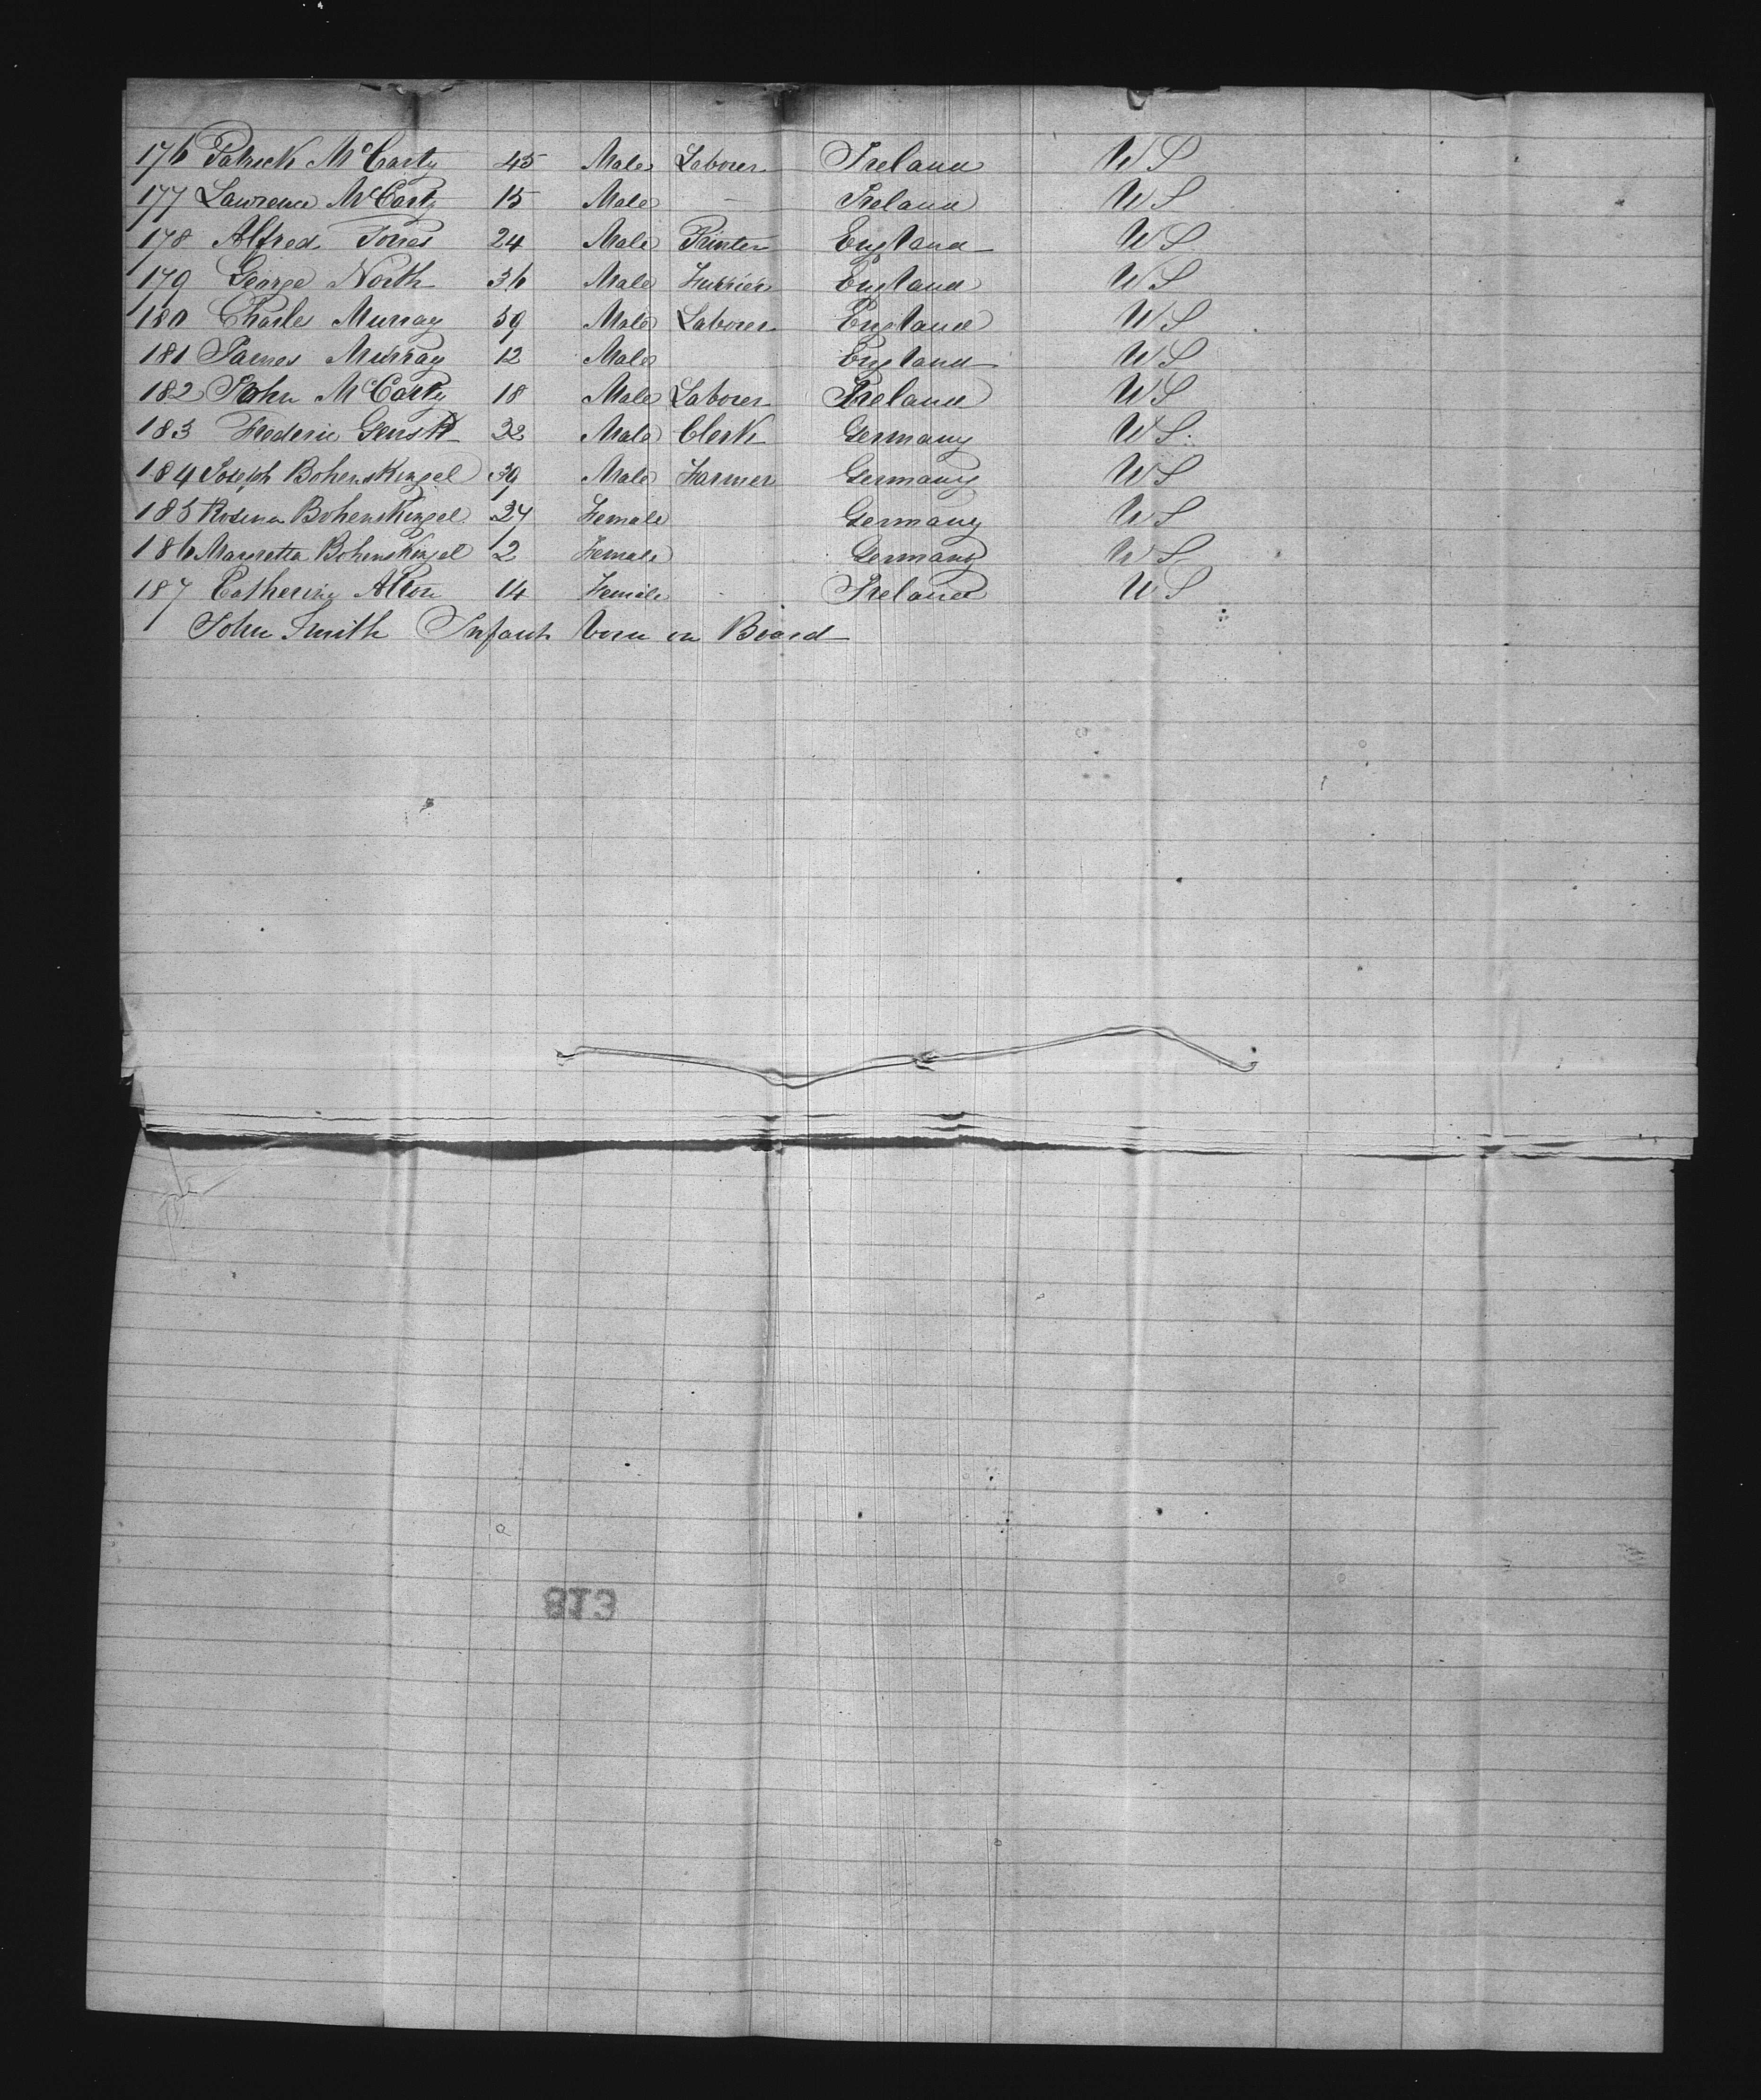 176 Patrick McCarty 45 Male Laborer Ireland U S
177 Lawrence McCarty 15 Male - Ireland U S
178 Alfred Torres 24 Male Printer England U S
179 George North 36 Male Furrier England U S
180 Charles Murray 59 Male Laborer England U S
181 James Murray 12 Male England U S
182 John McCarty 18 Male Laborer Ireland U S
183 Frederic 32 Male Clerk Germany U S
184 Joseph Bohenskingel 39 Male Farmer Germany U S
185 Rosina Bohenskingel 24 Female Germany U S
186 Bohenskingel 2 Female Germany U S
187 Catherine Alton 14 Female Ireland U S
John Smith Infant born on Board
813